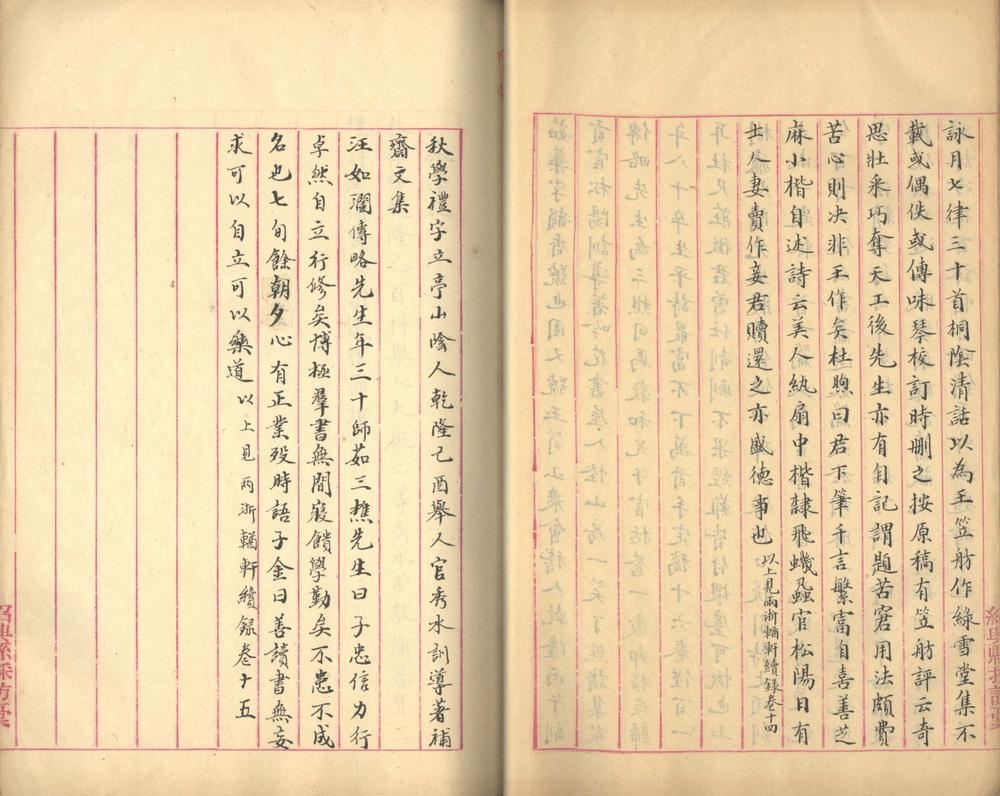 詠月七律三十首桐陰清話以為王笠舫作綠雪堂集不
載或偶佚或傳味琴校訂時刪之按原稿有笠舫評云奇
思壯采巧奪天工後先生亦有自記謂題苦窘用法頗費
苦心則決非王作矣杜煦曰君下筆千言繁富自喜善芝
麻小楷自述詩云美人紈扇中楷隸飛蠛蝨官松陽日有
士人妻賣作妾君贖還之亦盛德事也以上見兩浙輶軒續錄卷十四
秋學禮字立亭山陰人乾隆己酉舉人官秀水訓導著補
齋文集
汪如瀾傳略先生年三十師茹三樵先生曰子忠信力行
卓然自立行修矣博極羣書無間寢饋學勤矣不患不成
名也七旬餘朝夕心有正業歿時語子金曰善讀書無妄
求可以自立可以樂道以上見兩浙輶軒續錄卷十五
紹興縣採訪稾